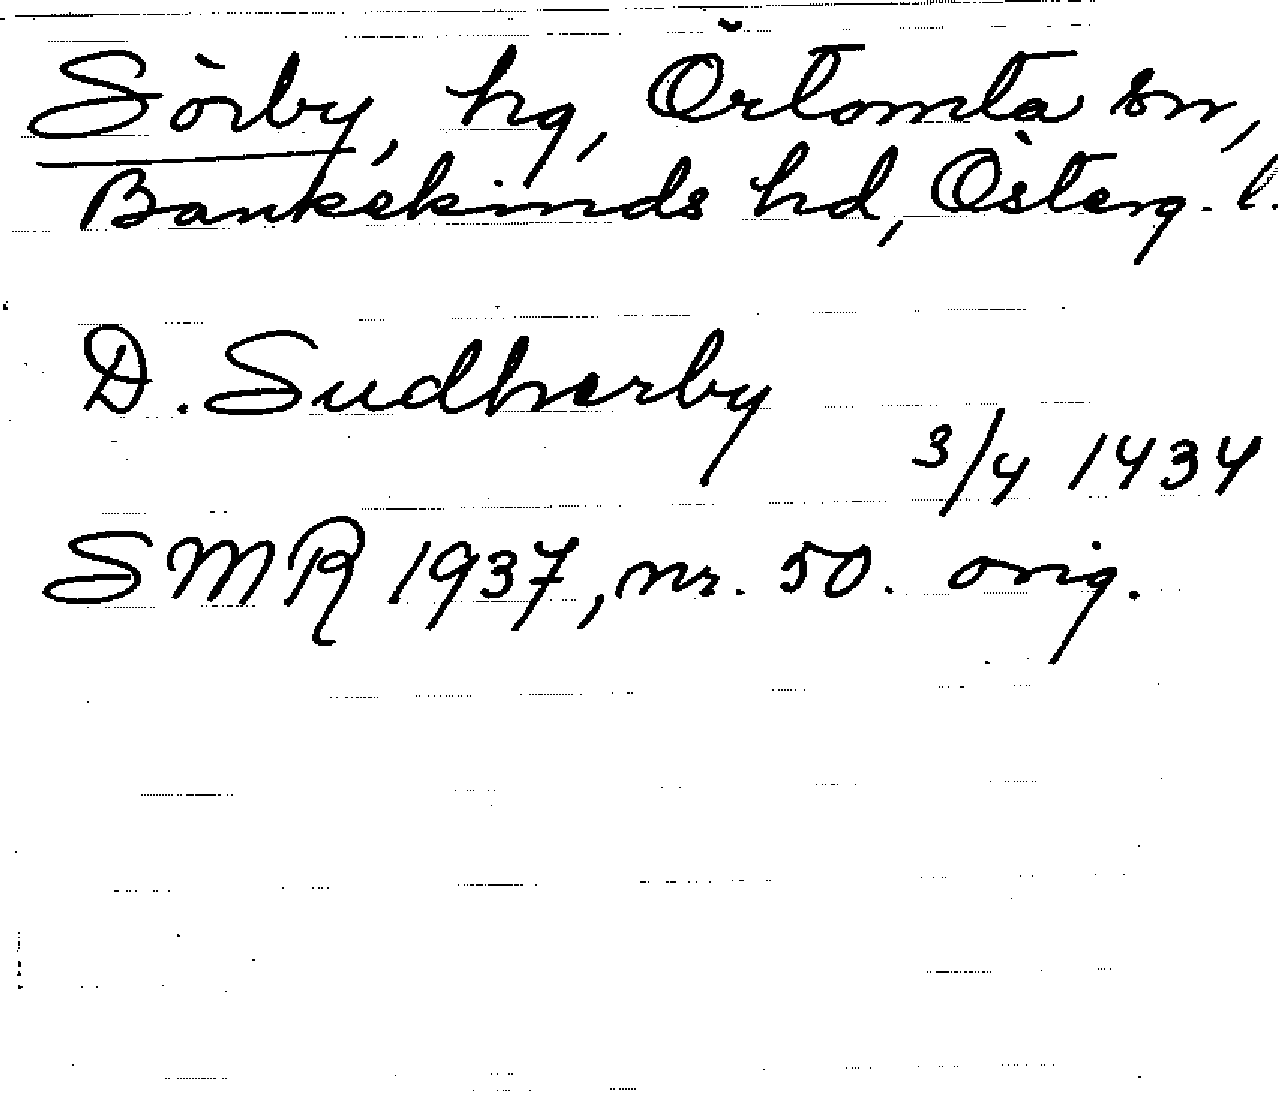 Sörby, hg, Örtomta sn,
Bankekinds hd, Österg. l.
D. Sudherby
3/4 1434
SMR 1937, nr. 50. orig.